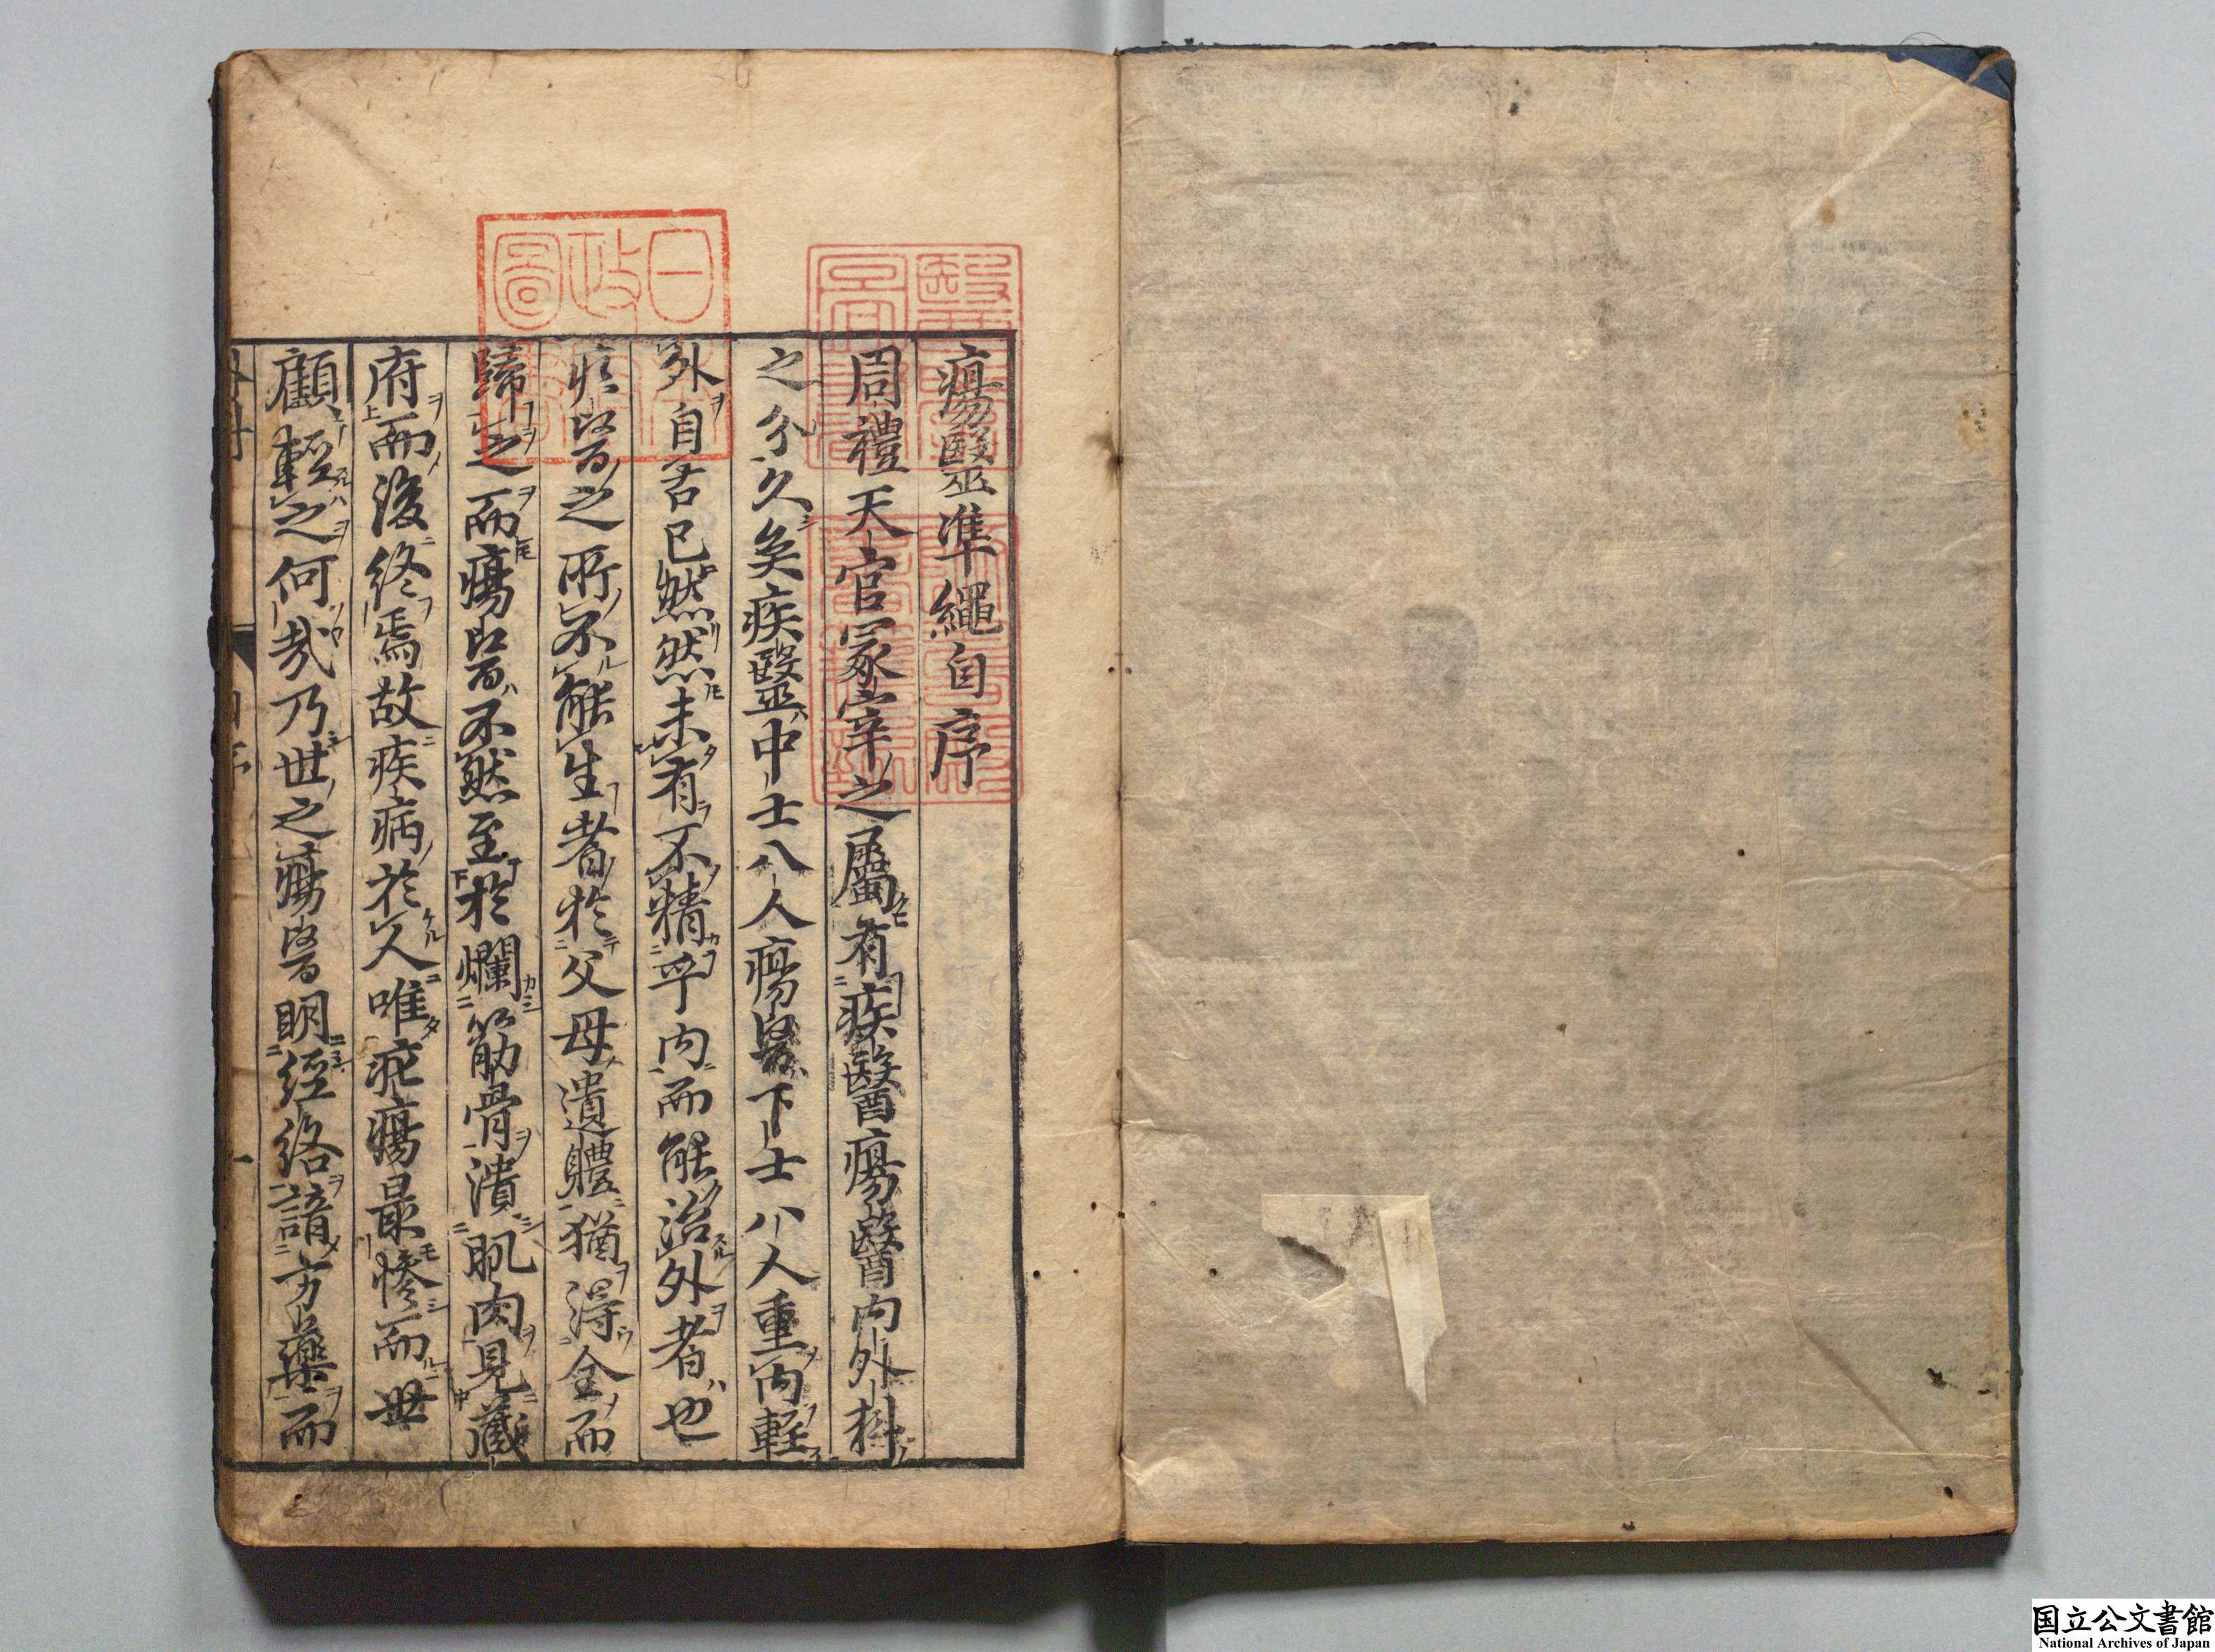 瘍毉準繩自序
周禮天官冢宰之屬有疾醫瘍醫内外科
之分久矣疾毉中士八人瘍医下士八人重内軽
外自古已然然未有不精乎内而能治外者也
疾医之所不能生者於父母遺體猶得全而
歸之而瘍医不然至於爛筋骨潰肌肉見蔵
府而後終焉故疾病於人唯疕瘍最慘而世
顧輕之何㢤乃世之瘍医明經絡諳方藥而
国立公文書館
National Archives of Japan